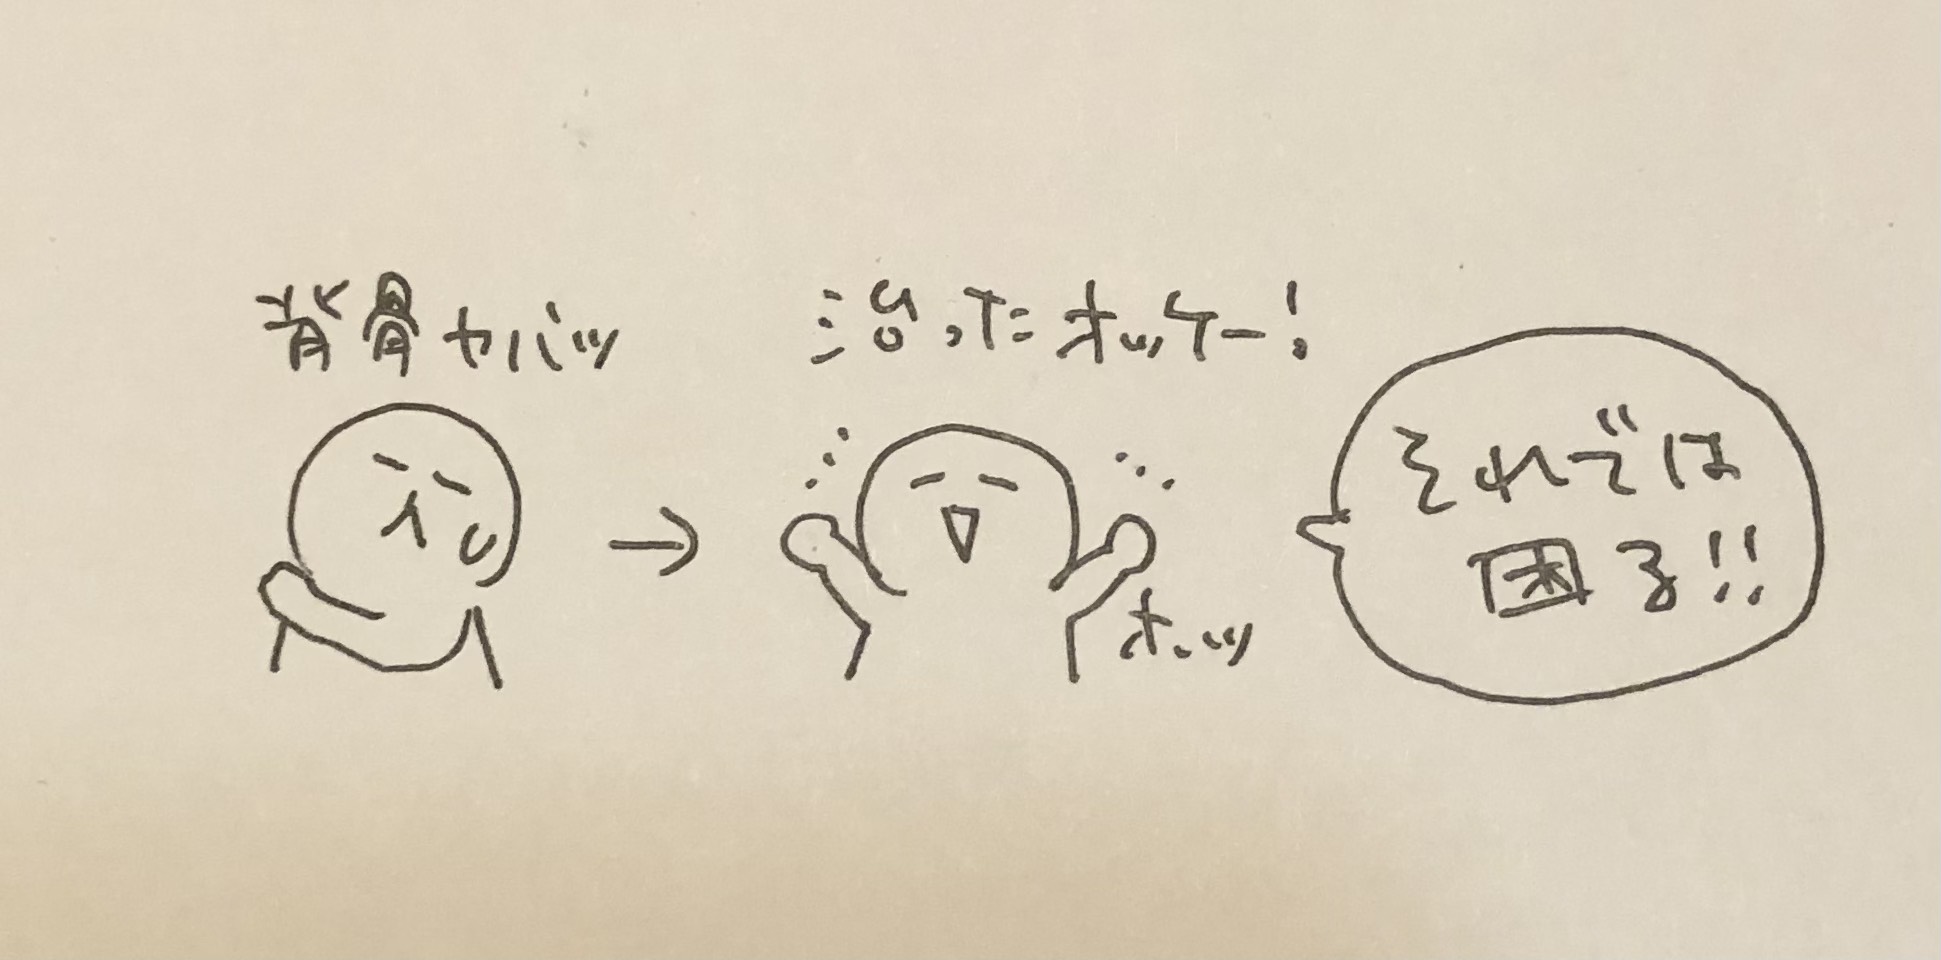 背骨ヤバッ
治ったオッケー!
ホッ
それでは
困る!!